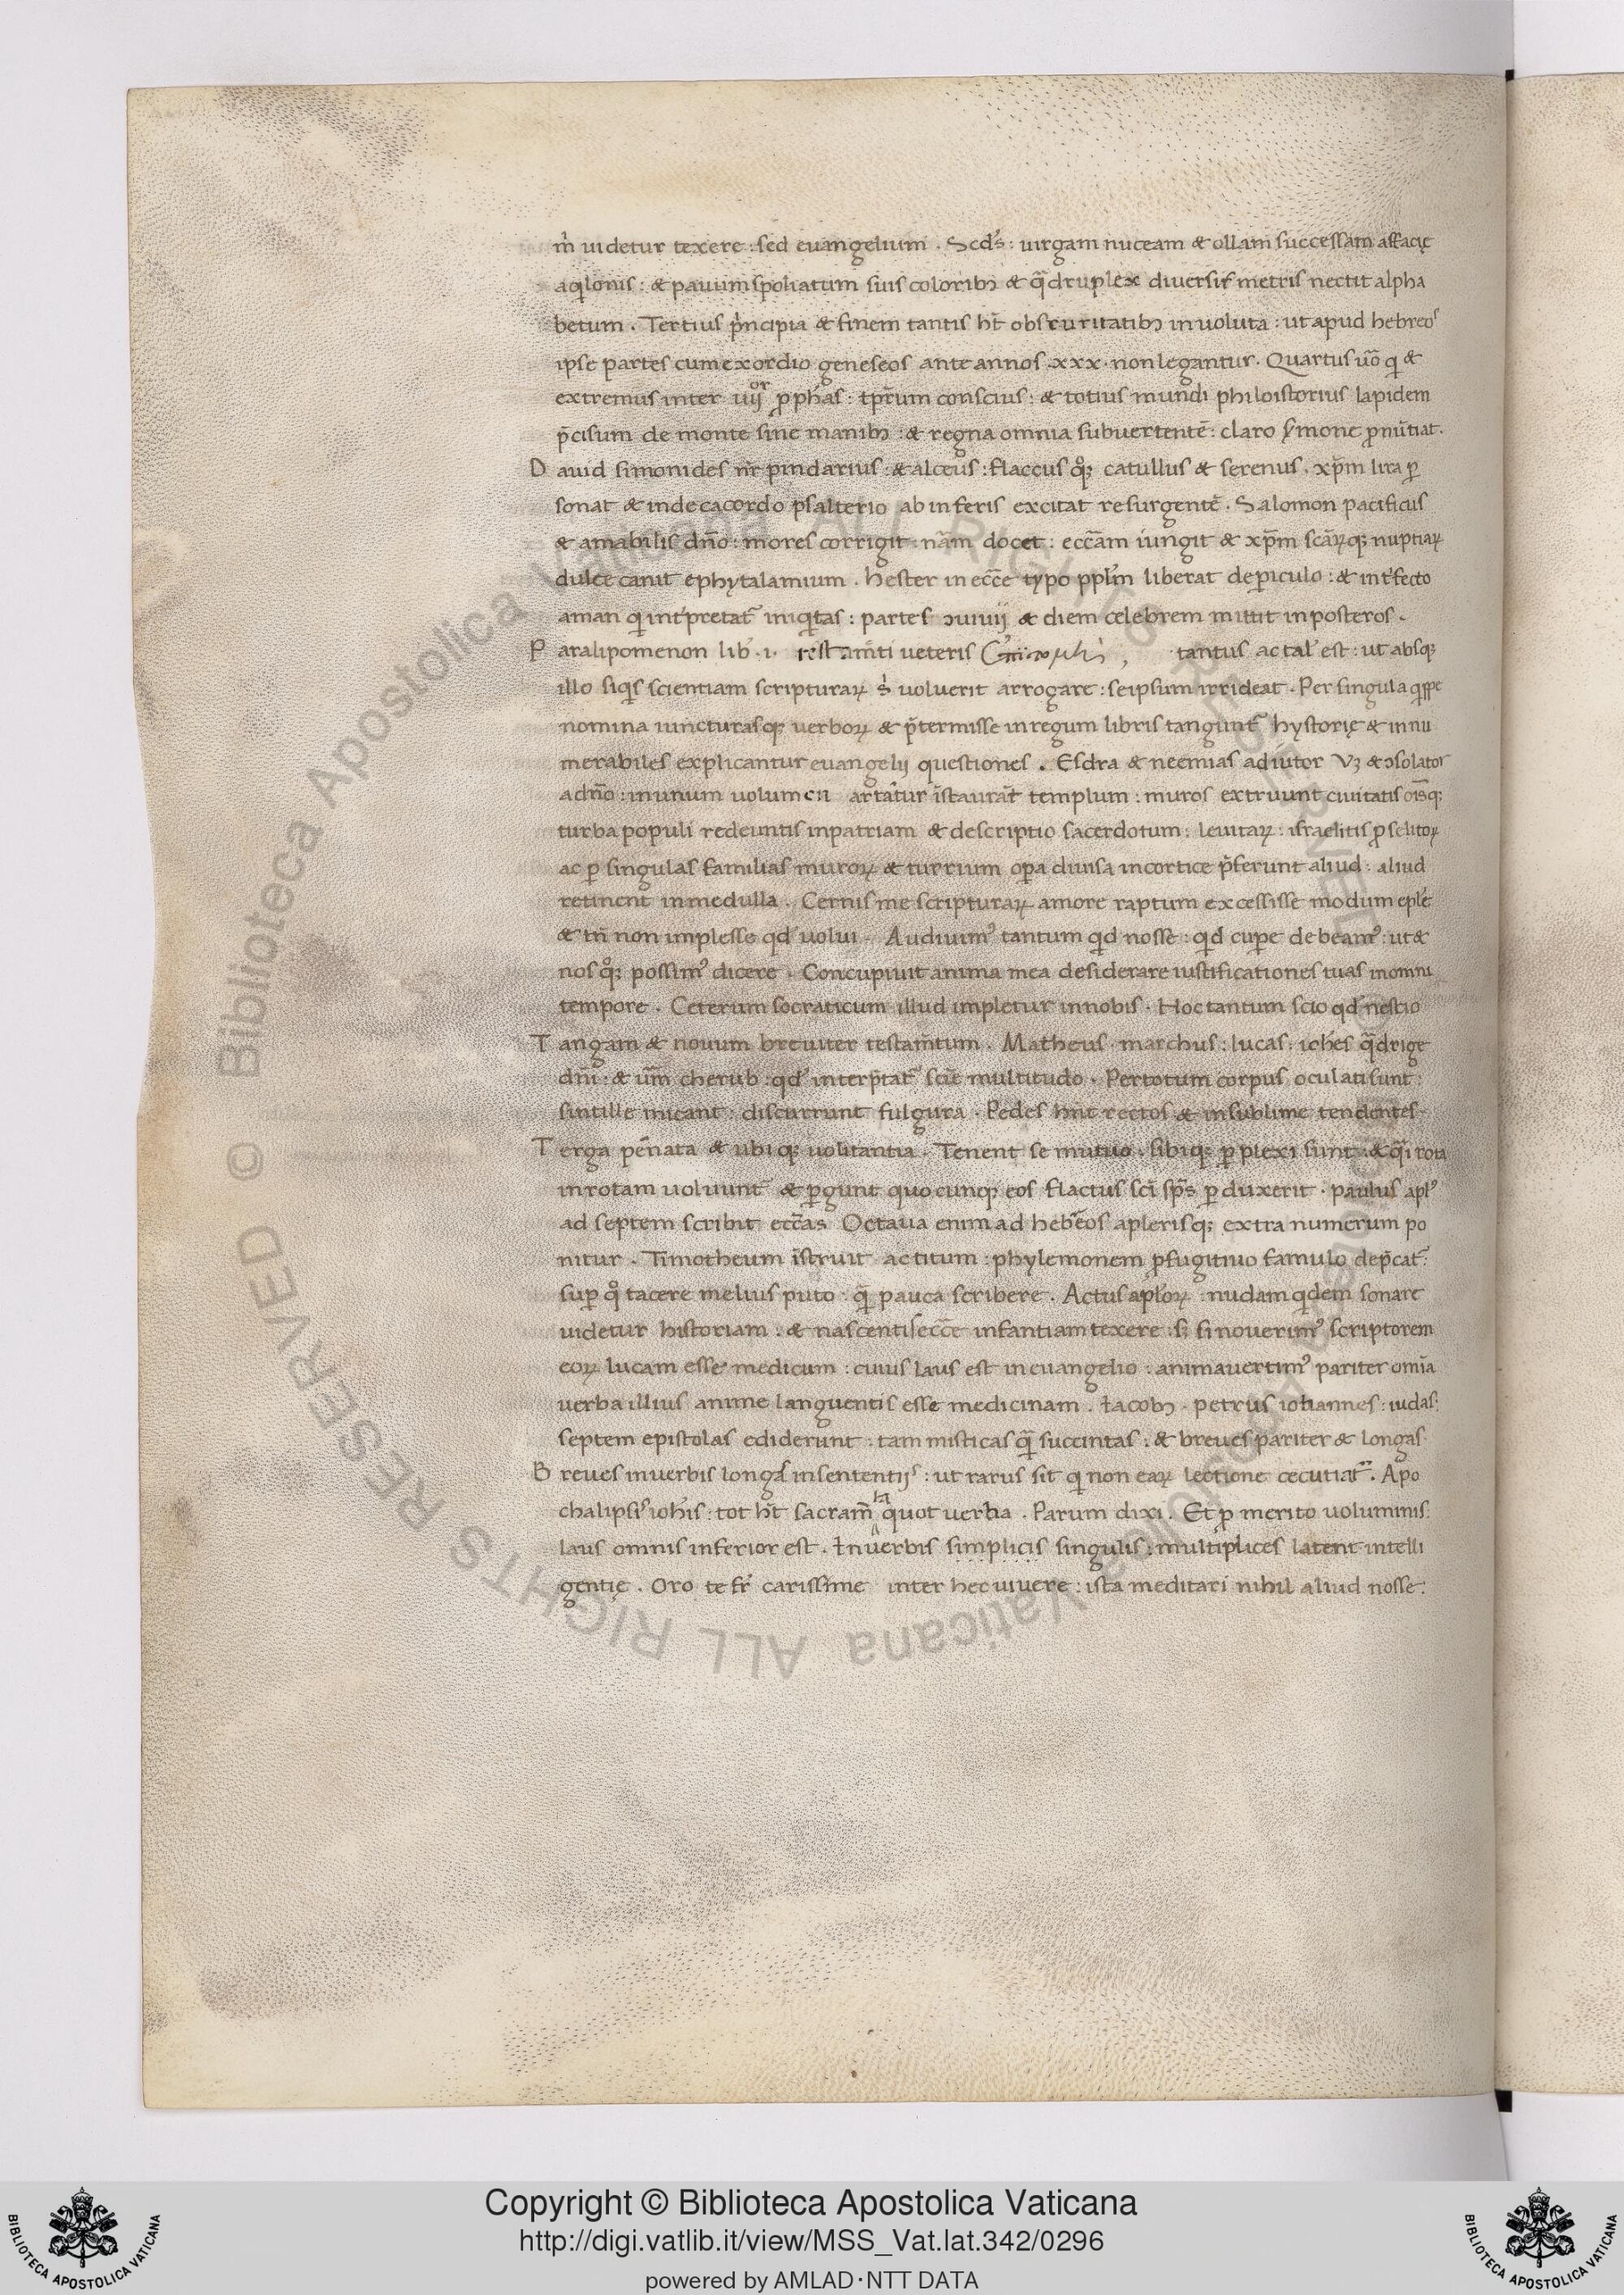 m̄ uidetur texere : sed euangelium . Scd's : uirgam nuceam & ollam successam affacię
aqilonis : & pauum spoliatum suis coloribꝫ & q̄druplex diuersis metris nectit alpha
betum . Tertius p̄ncipia & finem tantis ht̄ obscuritatibꝫ inuoluta : ut apud hebreos
ipse partes cum exordio geneseos ante annos .xxx. non legantur . Quartus ūo q &
extremus inter iiij^or ꝓphas : tp̄rum conscius : & totius mundi philoistorius lapidem
p̄cisum de monte sine manibꝫ : & regna omnia subuertentē : claro sꝰmone ꝓnūtiat .
D auid simonides nr̄ pindarius : & alceus : flaccus qꝫ catullus & serenus . xp̄m lira ꝑ
sonat & in decacordo psalterio ab inferis excitat resurgentē . Salomon pacificus
& amabilis dn̄o : mores corrigit nām docet : ecc̄am iungit & xp̄m scāꝝqꝫ nuptiaꝝ
dulce canit ephytalamium . Hester in ecc̄e typo ppl̄m liberat de ꝑiculo : & int'fecto
aman q int'pretat̄ iniqtas : partes & diem celebrem mittit in posteros .
P aralipomenon lib' .i. testam̄ti ueteris tantus ac tal' est : ut absqꝫ
illo siqs scientiam scripturaꝝ s' uoluerit arrogare : seipsum irrideat . Per singula qppe
nomina iuncturasqꝫ uerboꝝ & p̄termisse in regum libris tangunt̄ hystorię & innu
merabiles explicantur euangelij questiones . Esdra & neemias adiutor uꝫ & ↄsolator
adn̄o : in unum uolumen artātur īstaurāt templum : muros extruunt ciuitatis oīsqꝫ
turba populi redeuntis in patriam & descriptio sacerdotum : leuitaꝝ : israelitis ꝓselitoꝝ
ac ꝑ singulas familias muroꝝ & turrium oꝑa diuisa in cortice p̄ferunt aliud : aliud
retinent in medulla . Cernis me scripturaꝝ amore raptum excessisse modum epl'e
& tn̄ non implesse qd' uolui . Audiuim' tantum qd nosse : qd cuꝑe debeam' : ut &
nos qꝫ possim' dicere . Concupiuit anima mea desiderare iustificationes tuas in omni
tempore . Ceterum socraticum illud impletur in nobis . Hoc tantum scio qd' nescio
T angam & nouum breuiter testam̄tum . Matheus . marchus : lucas : ioh'es q̄drige
dn̄i : & ūm cherub : qd' interp̄tat̄ sc̄ie multitudo . Per totum corpus oculati sunt :
sintille micant : discurrunt fulgura . Pedes hn̄t rectos & in sublime tendentes
T erga pēnata & ubiqꝫ uolitantia . Tenent se mutuo . sibiqꝫ ꝑplexi sunt : & q̄i rota
in rotam uoluunt̄ & ꝑgunt quocunqꝫ eos flactus sci sp̄s ꝑduxerit . paulus apl'
ad septem scribit ecc̄as Octaua enim ad hebreos a plerisqꝫ extra numerum po
nitur . Timotheum īstruit ac titum : phylemonem ꝓ fugitiuo famulo dep̄cat̄ :
suꝑ q tacere melius puto : q̄ pauca scribere . Actus apl'oꝝ nudam qdem sonare
uidetur historiam : & nascentis ecc̄e infantiam texere : sꝫ si nouerim' scriptorem
eoꝝ lucam esse medicum : cuius laus est in euangelio : animauertim' pariter omīa
uerba illius anime languentis esse medicinam . Iacobꝫ . petrus iohannes : iudas :
septem epistolas ediderunt : tam misticas q̄ succintas : & breues pariter & longas
B reues in uerbis longas in sententijs : ut rarus sit q non eaꝝ lectione cecutiat̄ . Apo
chalipsis ioh'is : tot ht̄ sacram̄ta quot uerba . Parum dixi . Et ꝓ merito uoluminis :
laus omnis inferior est . In uerbis simplicis singulis : multiplices latent intelli
gentię . Oro te fr̄ carissime inter hec uiuere : ista meditari nihil aliud nosse :
© Biblioteca Apostolica Vaticana ALL RIGHTS RESERVED
© Biblioteca Apostolica Vaticana ALL RIGHTS RESERVED
Copyright © Biblioteca Apostolica Vaticana
http://digi.vatlib.it/view/MSS_Vat.lat.342/0296
powered by AMLAD·NTT DATA
BIBLIOTECA APOSTOLICA VATICANA
BIBLIOTECA APOSTOLICA VATICANA